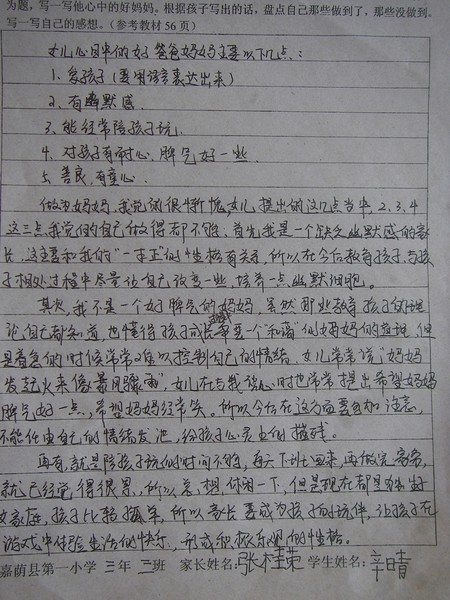 为题，写一写他心中的好妈妈。根据孩子写出的话，盘点自己那些做到了，那些没做到。
写一写自己的感想。（参考教材56页）
女儿心目中的好爸爸妈妈主要以下几点：
1、爱孩子（要用语言表达出来）
2、有幽默感
3、能经常陪孩子玩
4、对孩子有耐心、脾气好一些
5、善良，有童心
做为妈妈，我觉的很惭愧，女儿提出的这几点当中，2、3、4
这三点我觉的自己做得都不够，首先我是一个缺乏幽默感的家
长，这主要和我的“一本正”的性格有关系，所以在今后教育孩子，与孩
子相处过程中尽量让自己改变一些，培养一点幽默细胞。
其次，我不是一个好脾气的妈妈，虽然那些教育孩子的理
论自己都知道，也懂得孩子成长需要一个和谐的妈妈的道理，但
是着急的时候常常难以控制自己的情绪，女儿常常说“妈妈
发起火来像暴风骤雨”，女儿在与我谈心时也常常提出希望妈妈
脾气好一点，希望妈妈经常笑。所以今后在这方面要多加注意，
不能任由自己的情绪发泄，给孩子心灵上的摧残。
再有，就是陪孩子玩的时间不够，每天下班回来，再做完家务，
就已经觉得很累，所以总想休闲一下，但是现在都是独生子
女家庭，孩子比较孤单，所以家长要成为孩子的玩伴，让孩子在
游戏中体验生活的快乐，形成积极乐观的性格。
嘉荫县第一小学 三年 二班 家长姓名：张桂荣 学生姓名：辛晴